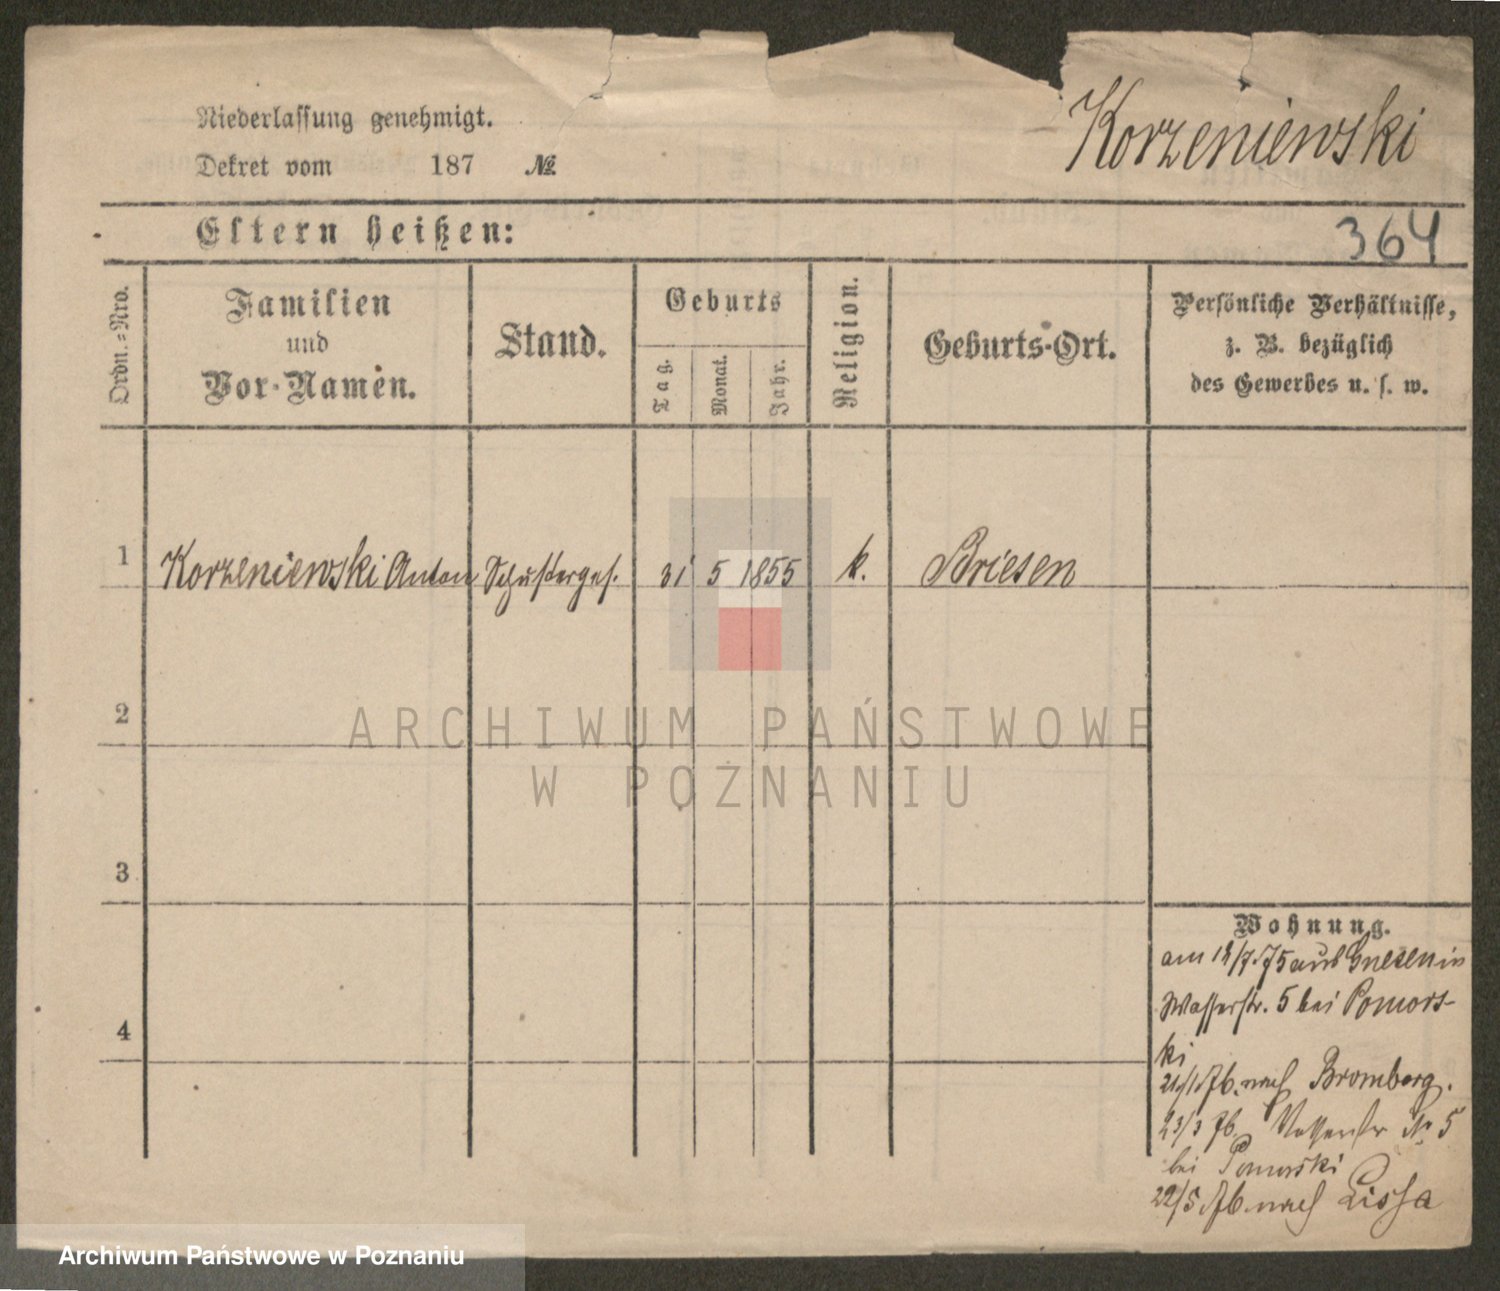 Niederlassung genehmigt.
Dekret vom 187 №
Korzeniewski
Eltern heißen:
364
Ordn.=Nro.
Familien
und
Vor-Namen.
Stand.
Geburts
Tag.
Monat.
Jahr.
Religion.
Geburts-Ort.
Persönliche Verhältnisse,
z. B. bezüglich
des Gewerbes u. s. w.
1 Korzeniewski Anton Schusterges. 31 5 1855 k. Briesen
2
3
4
ARCHIWUM PAŃSTWOWE
W POZNANIU
Wohnung.
am 14/7 75 aus Gnesen in
Wasserstr. 5 bei Pomors-
ki
21/1 76. nach Bromberg.
23/3 76. Wasserstr № 5
bei Pomorski
22/5 76 nach Lissa
Archiwum Państwowe w Poznaniu